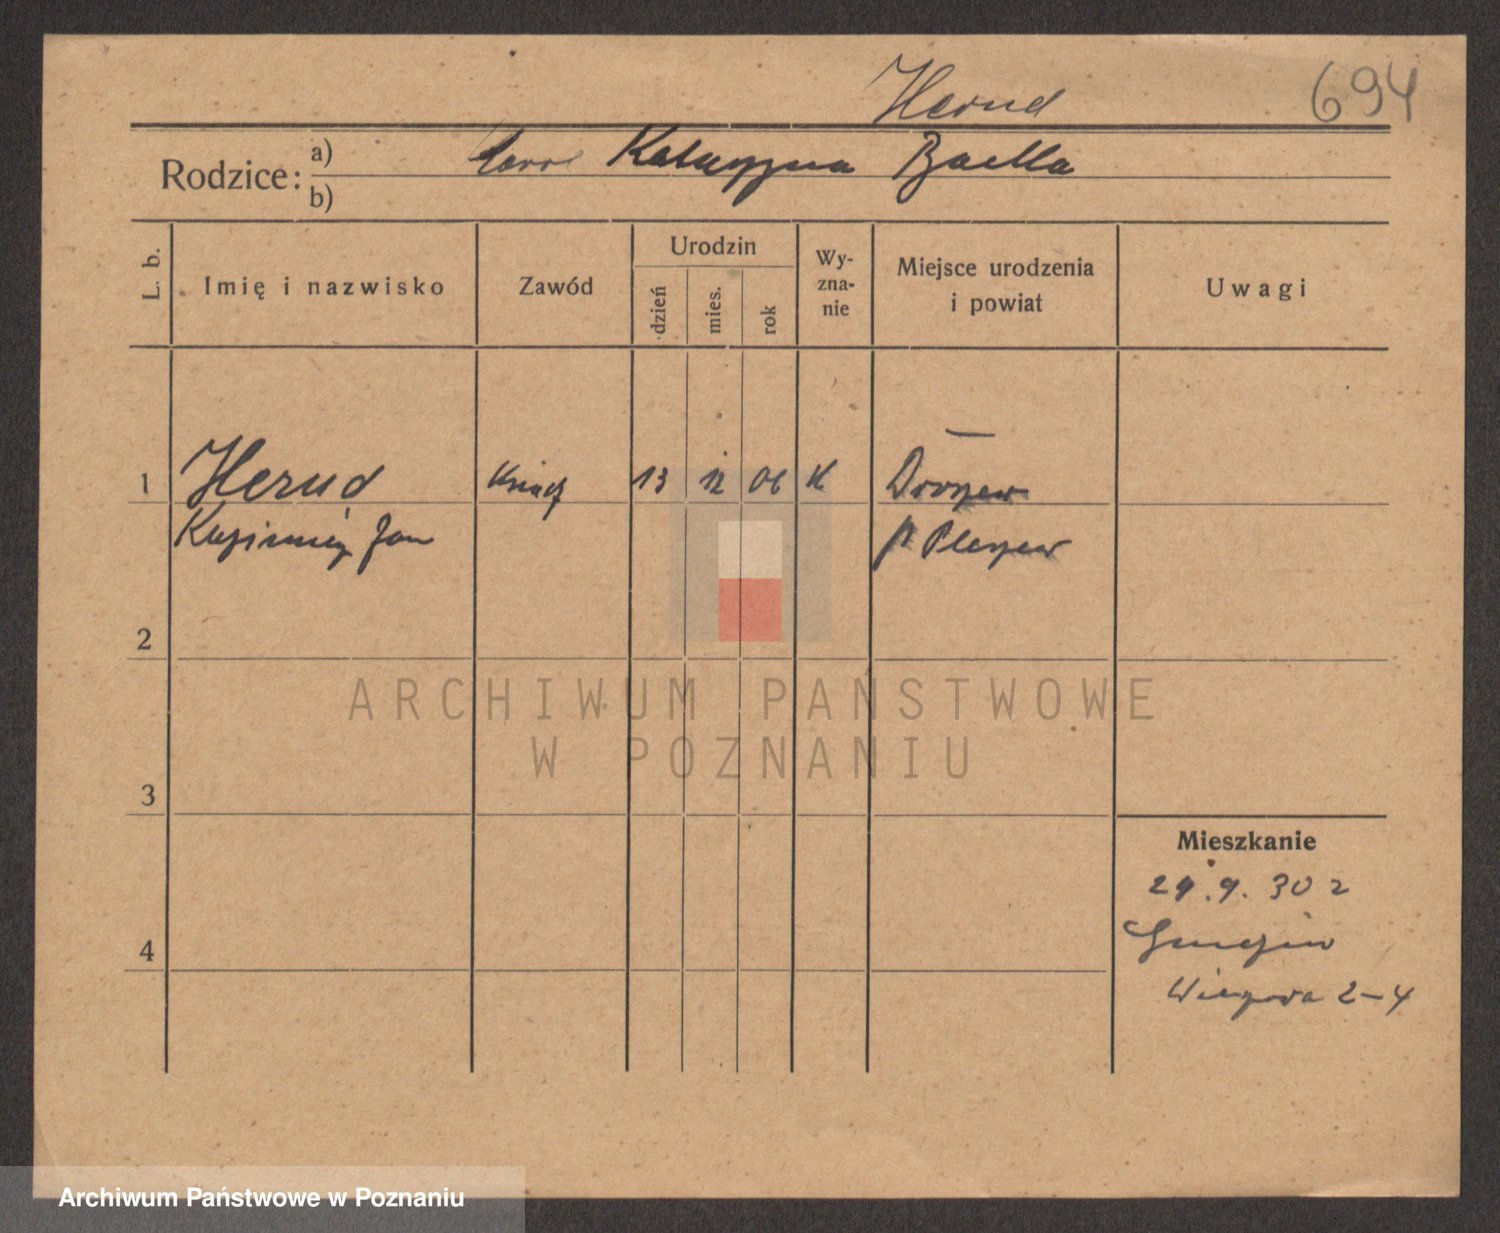 694
Herud
Rodzice: a) Katarzyna
b)
L. b.
Imię i nazwisko
Zawód
Urodzin
dzień
mies.
rok
Wy-
zna-
nie
Miejsce urodzenia
i powiat
Uwagi
1 Herud 13 12 06 K
Kazimierz Jan p Pleszew
2
ARCHIWUM PAŃSTWOWE
W POZNANIU
3
Mieszkanie
29.9.30 r
4
2-4
Archiwum Państwowe w Poznaniu